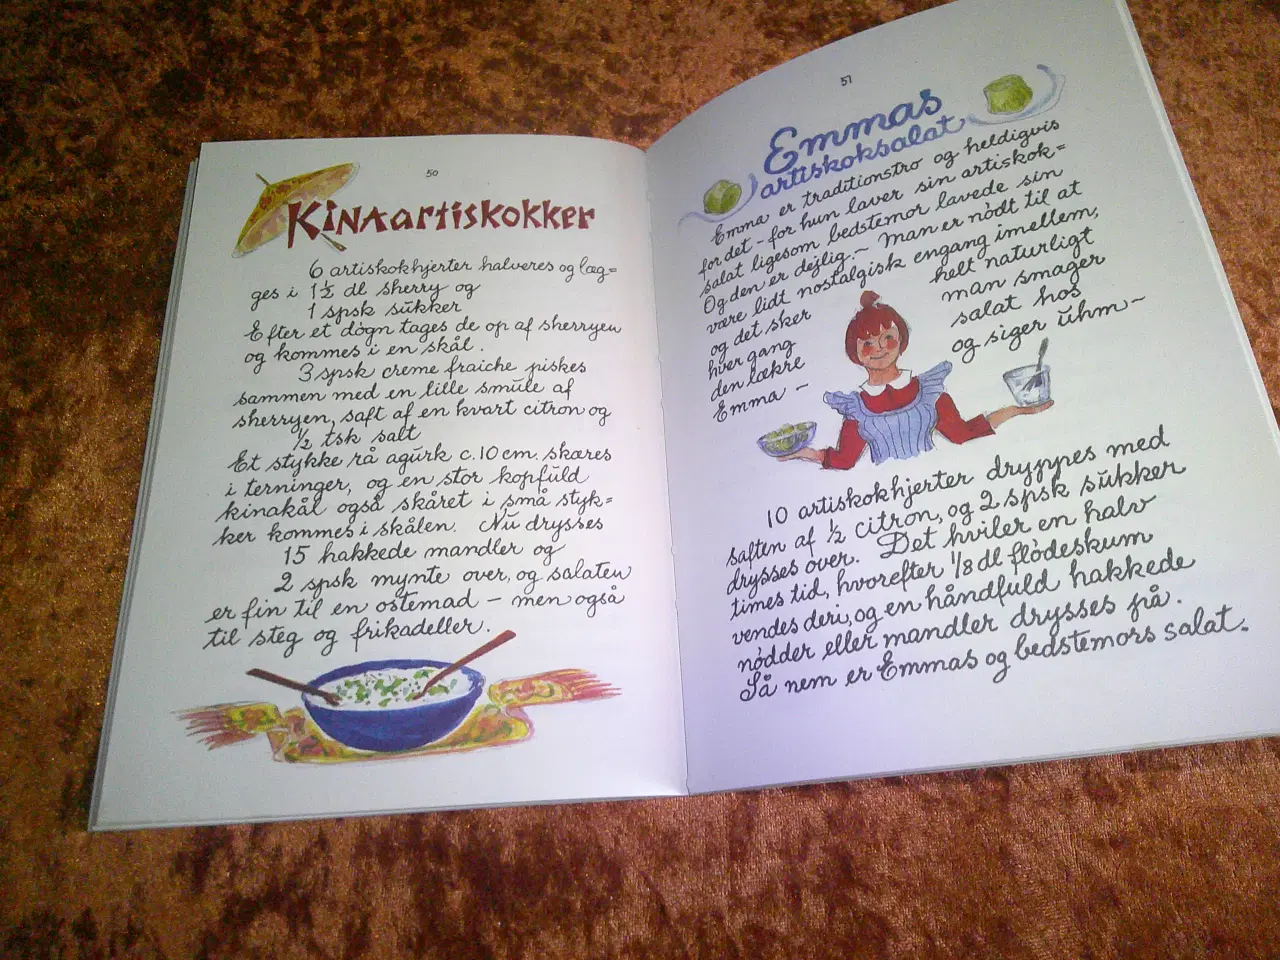 50
Kinaartiskokker
6 artiskokhjerter halveres og læg=
ges i 1½ dl sherry og
1 spsk sukker
Efter et døgn tages de op af sherryen
og kommes i en skål.
3 spsk creme fraiche piskes
sammen med en lille smule af
sherryen, saft af en kvart citron og
½ tsk salt
Et stykke rå agurk c. 10 cm. skæres
i terninger, og en stor kopfuld
kinakål også skåret i små styk=
ker kommes i skålen. Nu drysses
15 hakkede mandler og
2 spsk mynte over, og salaten
er fin til en ostemad – men også
til steg og frikadeller.
51
Emmas
artiskoksalat
Emma er traditionstro og heldigvis
for det – for hun laver sin artiskok=
salat ligesom bedstemor lavede sin
Og den er dejlig. – Man er nødt til at
være lidt nostalgisk engang imellem,
og det sker helt naturligt
hver gang man smager
den lækre salat hos
Emma – og siger uhm –
10 artiskokhjerter dryppes med
saften af ½ citron, og 2 spsk sukker
drysses over. Det hviler en halv
times tid, hvorefter ⅛ dl flødeskum
vendes deri, og en håndfuld hakkede
nødder eller mandler drysses på.
Så nem er Emmas og bedstemors salat.